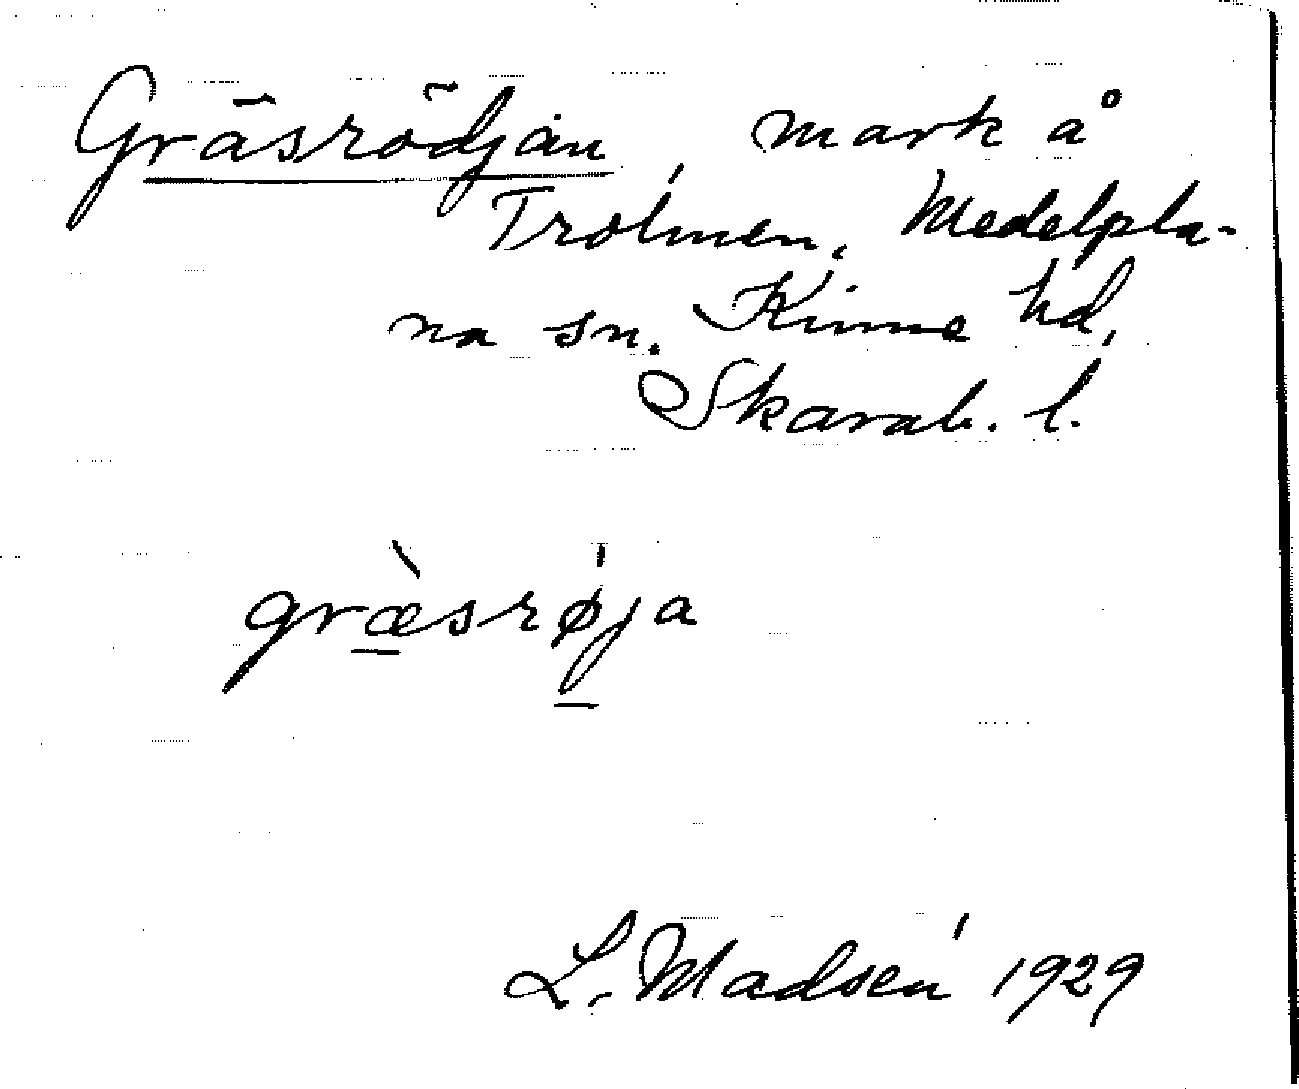 Gräsrödjan, mark å
Trolmen, Medelpla-
na sn. Kinne hd,
Skarab. l.
græ̀srøja
L. Madsén 1929